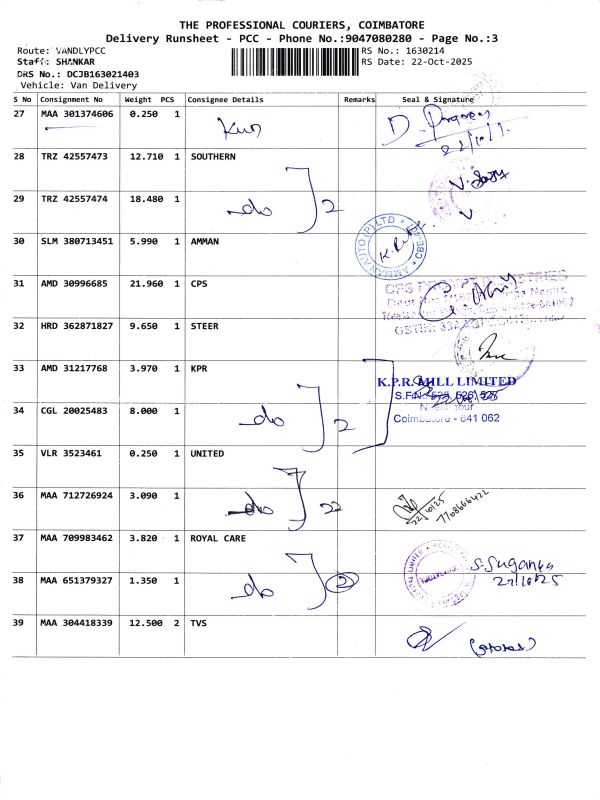 THE PROFESSIONAL COURIERS, COIMBATORE
Delivery Runsheet - PCC - Phone No.:9047080280 - Page No.:3
Route: VANDLYPCC
RS No.: 1630214
Staff: SHANKAR
RS Date: 22-Oct-2025
DRS No.: DCJB163021403
Vehicle: Van Delivery
S No Consignment No Weight PCS Consignee Details Remarks Seal & Signature
27 MAA 301374606 0.250 1
28 TRZ 42557473 12.710 1 SOUTHERN
29 TRZ 42557474 18.480 1 do 2
30 SLM 380713451 5.990 1 AMMAN
31 AMD 30996685 21.960 1 CPS
32 HRD 362871827 9.650 1 STEER
33 AMD 31217768 3.970 1 KPR
K.P.R. MILL LIMITED
34 CGL 20025483 8.000 1 do 2
Coimbatore - 641 062
35 VLR 3523461 0.250 1 UNITED
36 MAA 712726924 3.090 1 do 22 22/10/25 7708666422
37 MAA 709983462 3.820 1 ROYAL CARE S. Suganya
38 MAA 651379327 1.350 1 do 2 22/10/25
39 MAA 304418339 12.500 2 TVS (stores)